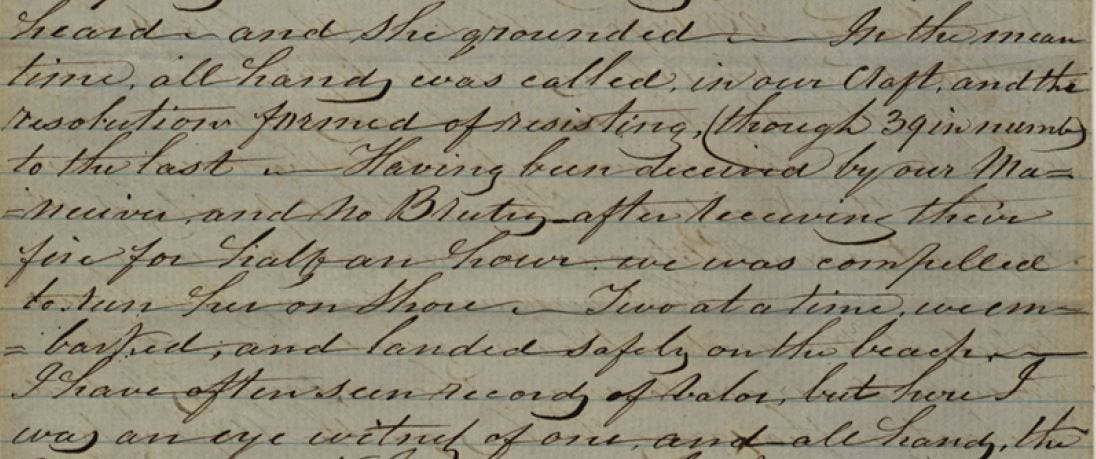 heard - and she grounded — In the mean
time, all hands was called, in our Craft, and the
resolution formed of resisting, (though 39 in numb)
to the last — Having been deceived by our Ma=
=neuver, and no after receiving their
fire for half an hour. we was compelled
to run her on shore — Two at a time, we em=
=barked, and landed safely on the beach. —
I have often seen records of valor, but here I
was an eye witness of one, and all hands, the